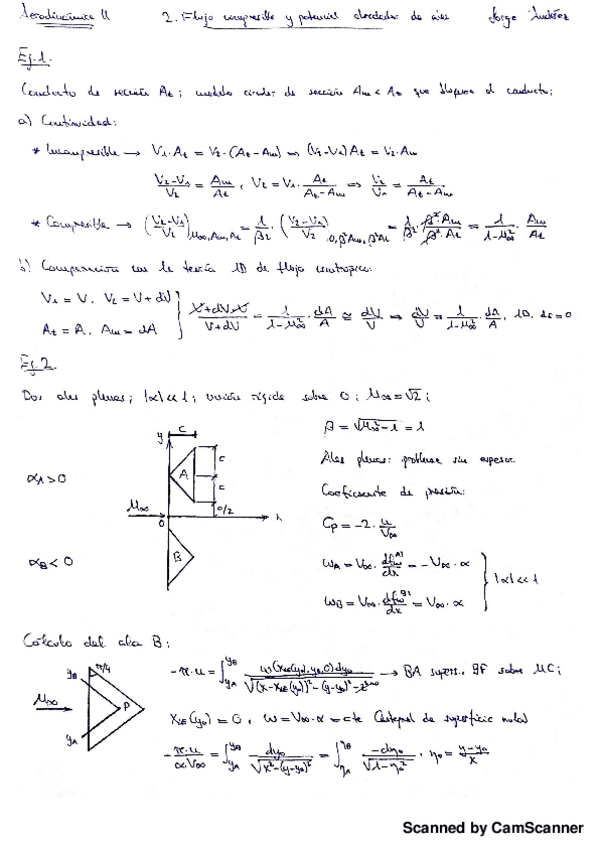 Aerodinámica II 2. Flujo compresible y potencial alrededor de alas Jorge
Ej. 1.
Conducto de sección At; modelo circular de sección Am < At que bloquea el conducto;
a) Continuidad:
* Incompresible → V1·At = V2·(At-Am) ⇒ (V2-V1)At = V2·Am
(V2-V1)/V2 = Am/At, V2 = V1·At/(At-Am) ⇒ V2/V1 = At/(At-Am)
* Compresible → ((V2-V1)/V2)M∞,Am,At = 1/β²·((V2-V1)/V2)0,β²Am,β²At = 1/β²·β²Am/β²·At = 1/(1-M∞²)·Am/At
b) Comparación con la teoría 1D de flujo isentrópico:
V1 = V, V2 = V+dV
At = A, Am = dA
(V+dV-V)/(V+dV) = 1/(1-M∞²)·dA/A ≅ dV/V ⇒ dV/V = 1/(1-M∞²)·dA/A, 1D, ds=0
Ej. 2.
Dos alas planas; |α|<<1; unión rígida sobre O; M∞=√2;
y
c
A
c
c
c/2
αA>0
M∞
O
B
αB<0
β = √(M∞²-1) = 1
Alas planas: problema sin espesor
Coeficiente de presión:
Cp = -2·u/V∞
ωA = V∞·dfω(A)/dx = -V∞·α
ωB = V∞·dfω(B)/dx = V∞·α
|α|<<1
Cálculo del ala B:
yB
π/4
M∞
P
yA
-π·u = ∫ ω(xBE(y0),y0,0)dy0/√((x-xBE(y0))²-(y-y0)²-z²) → BA supers.
xBE(y0) = 0, ω = V∞·α = cte
-π·u/αV∞ = ∫ dy0/√(x²-(y-y0)²) = ∫ -dη0/√(1-η0²), η0 = (y-y0)/x
Scanned by CamScanner